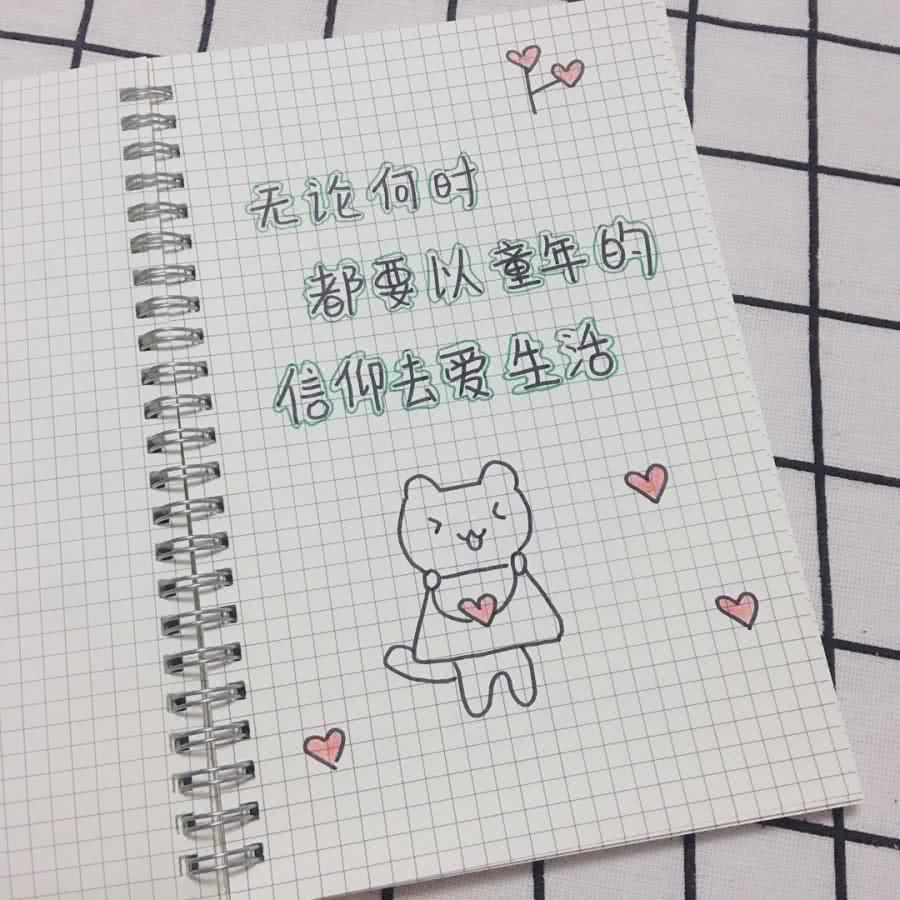 无论何时
都要以童年的
信仰去爱生活